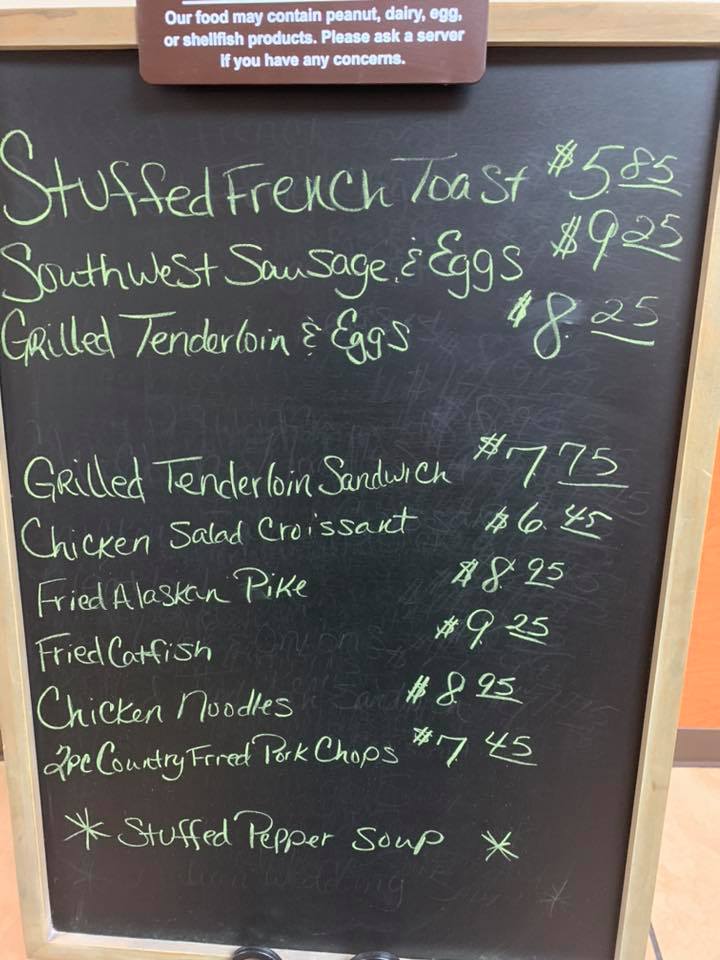 Our food may contain peanut, dairy, egg,
or shellfish products. Please ask a server
if you have any concerns.
Stuffed French Toast $5.85
Southwest Sausage & Eggs $9.25
Grilled Tenderloin & Eggs $8.25
Grilled Tenderloin Sandwich $7.75
Chicken Salad Croissant $6.45
Fried Alaskan Pike $8.95
Fried Catfish $9.25
Chicken Noodles $8.95
2pc Country Fried Pork Chops $7.45
* Stuffed Pepper Soup *